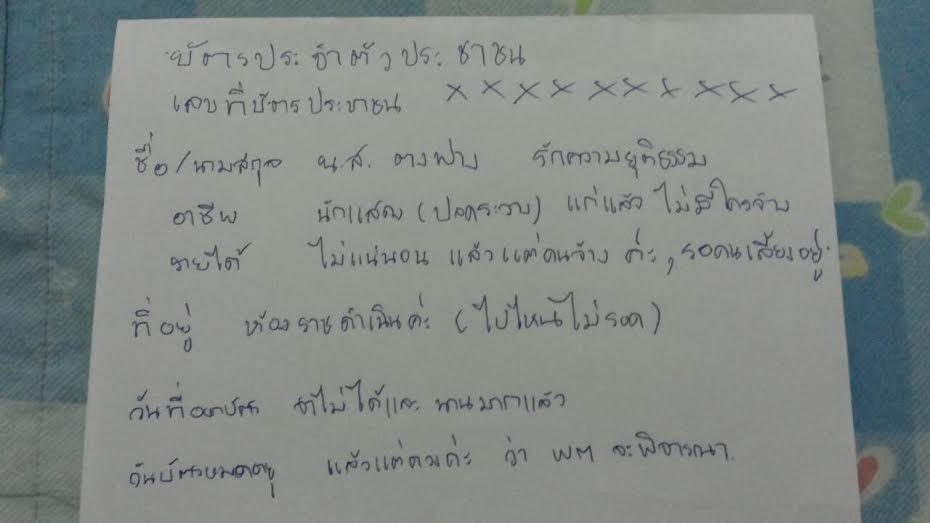 บัตรประจำตัวประชาชน
เลขที่บัตรประชาชน x x x x x x x x x x
ชื่อ/นามสกุล น.ส. ตางฟาง รักความยุติธรรม
อาชีพ นักแสดง (ปลดระวาง) แก่แล้ว ไม่มีใครจ้าง
รายได้ ไม่แน่นอน แล้วแต่คนจ้าง ค่ะ, รอคนเลี้ยงอยู่
ที่อยู่ ห้องราชดำเนินค่ะ (ไปไหนไม่รอด)
วันที่ออกบัตร จำไม่ได้และ นานมากแล้ว
วันบัตรหมดอายุ แล้วแต่ ค่ะ ว่า จะพิจารณา.